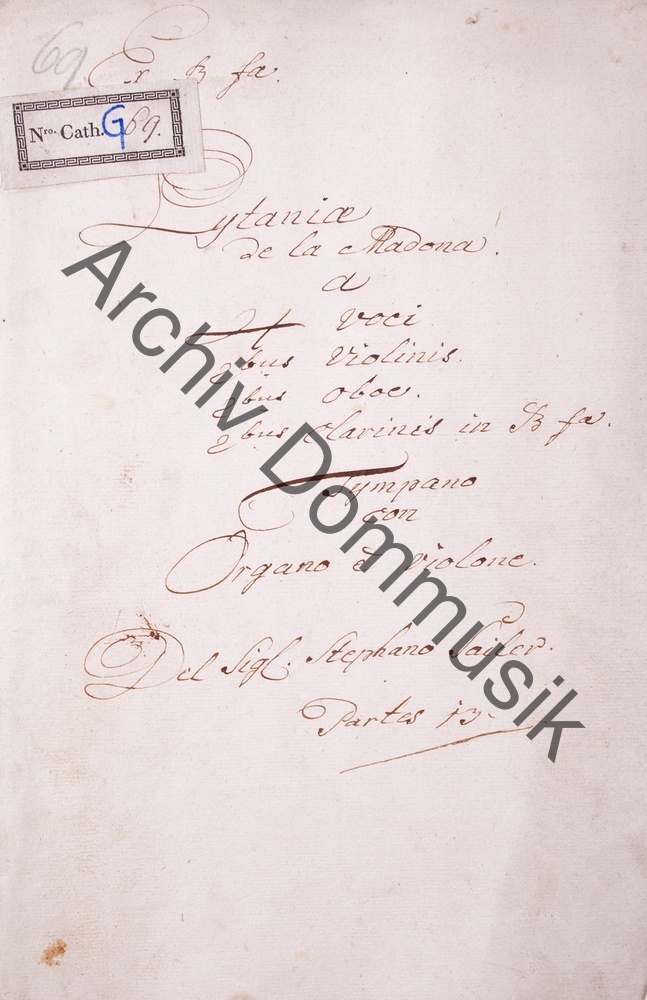 69
Ex B fa.
Nro. Cath. G 69.
Lytaniæ
de la Madona.
a
4 voci
2bus Violinis.
2bus oboe.
2bus Clarinis in B fa.
Tympano
con
Organo è violone.
Del Sigl. Stephano Sailer.
Partes 13.
Archiv Dommusik